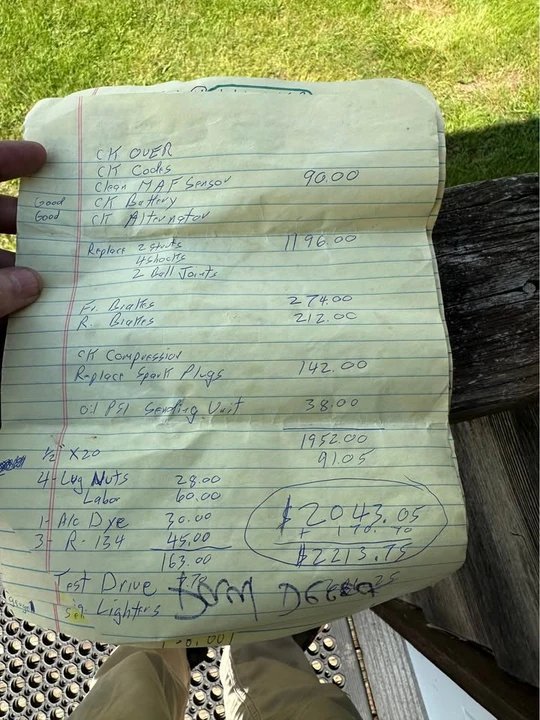 CK OVER
CK Codes
Clean MAF Sensor 90.00
Good CK Battery
Good CK Alternator
Replace 2 struts 1196.00
4 shocks
2 Ball Joints
Fr. Brakes 274.00
R. Brakes 212.00
CK Compression
Replace Spark Plugs 142.00
Oil PSI Sending Unit 38.00
1952.00
1/2" X20 91.05
4- Lug Nuts 28.00
Labor 60.00 $2043.05
1- A/c Dye 30.00
3- R-134 45.00 $2213.75
163.00
Test Drive
Lighters